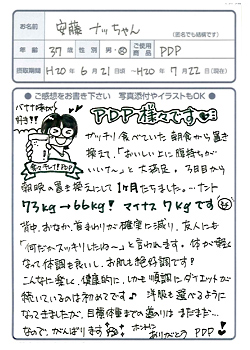 お名前 安藤 ナッちゃん
(匿名でも結構です)
年齢 37才 性別 男・女 ご使用商品 PDP
摂取期間 H20年6月21日頃～H20年7月22日(現在)
●ご感想をお書き下さい 写真添付やイラストもOK●
バナナ味が好き!!
PDP様々です
ガッチリ食べていた朝食から置き
換えて、「おいしい上に腹持ちが
いい～」と大満足。3日目から
朝晩の置き換えにして1ヶ月たちました。…ナント
73kg→66kg! マイナス7kgです
背中、おなか、首まわりが確実に減り、友人にも
「何だかスッキリしたね～」と言われます。体が軽く
なって体調も良いし、お肌も絶好調です!
こんなに楽しく、健康的に、しかも順調にダイエットが
続いているのは初めてです♪ 洋服も選べるように
なってきましたが、目標体重までの道のりはまだまだ…
なので、がんばります
ホントに
ありがとう PDP